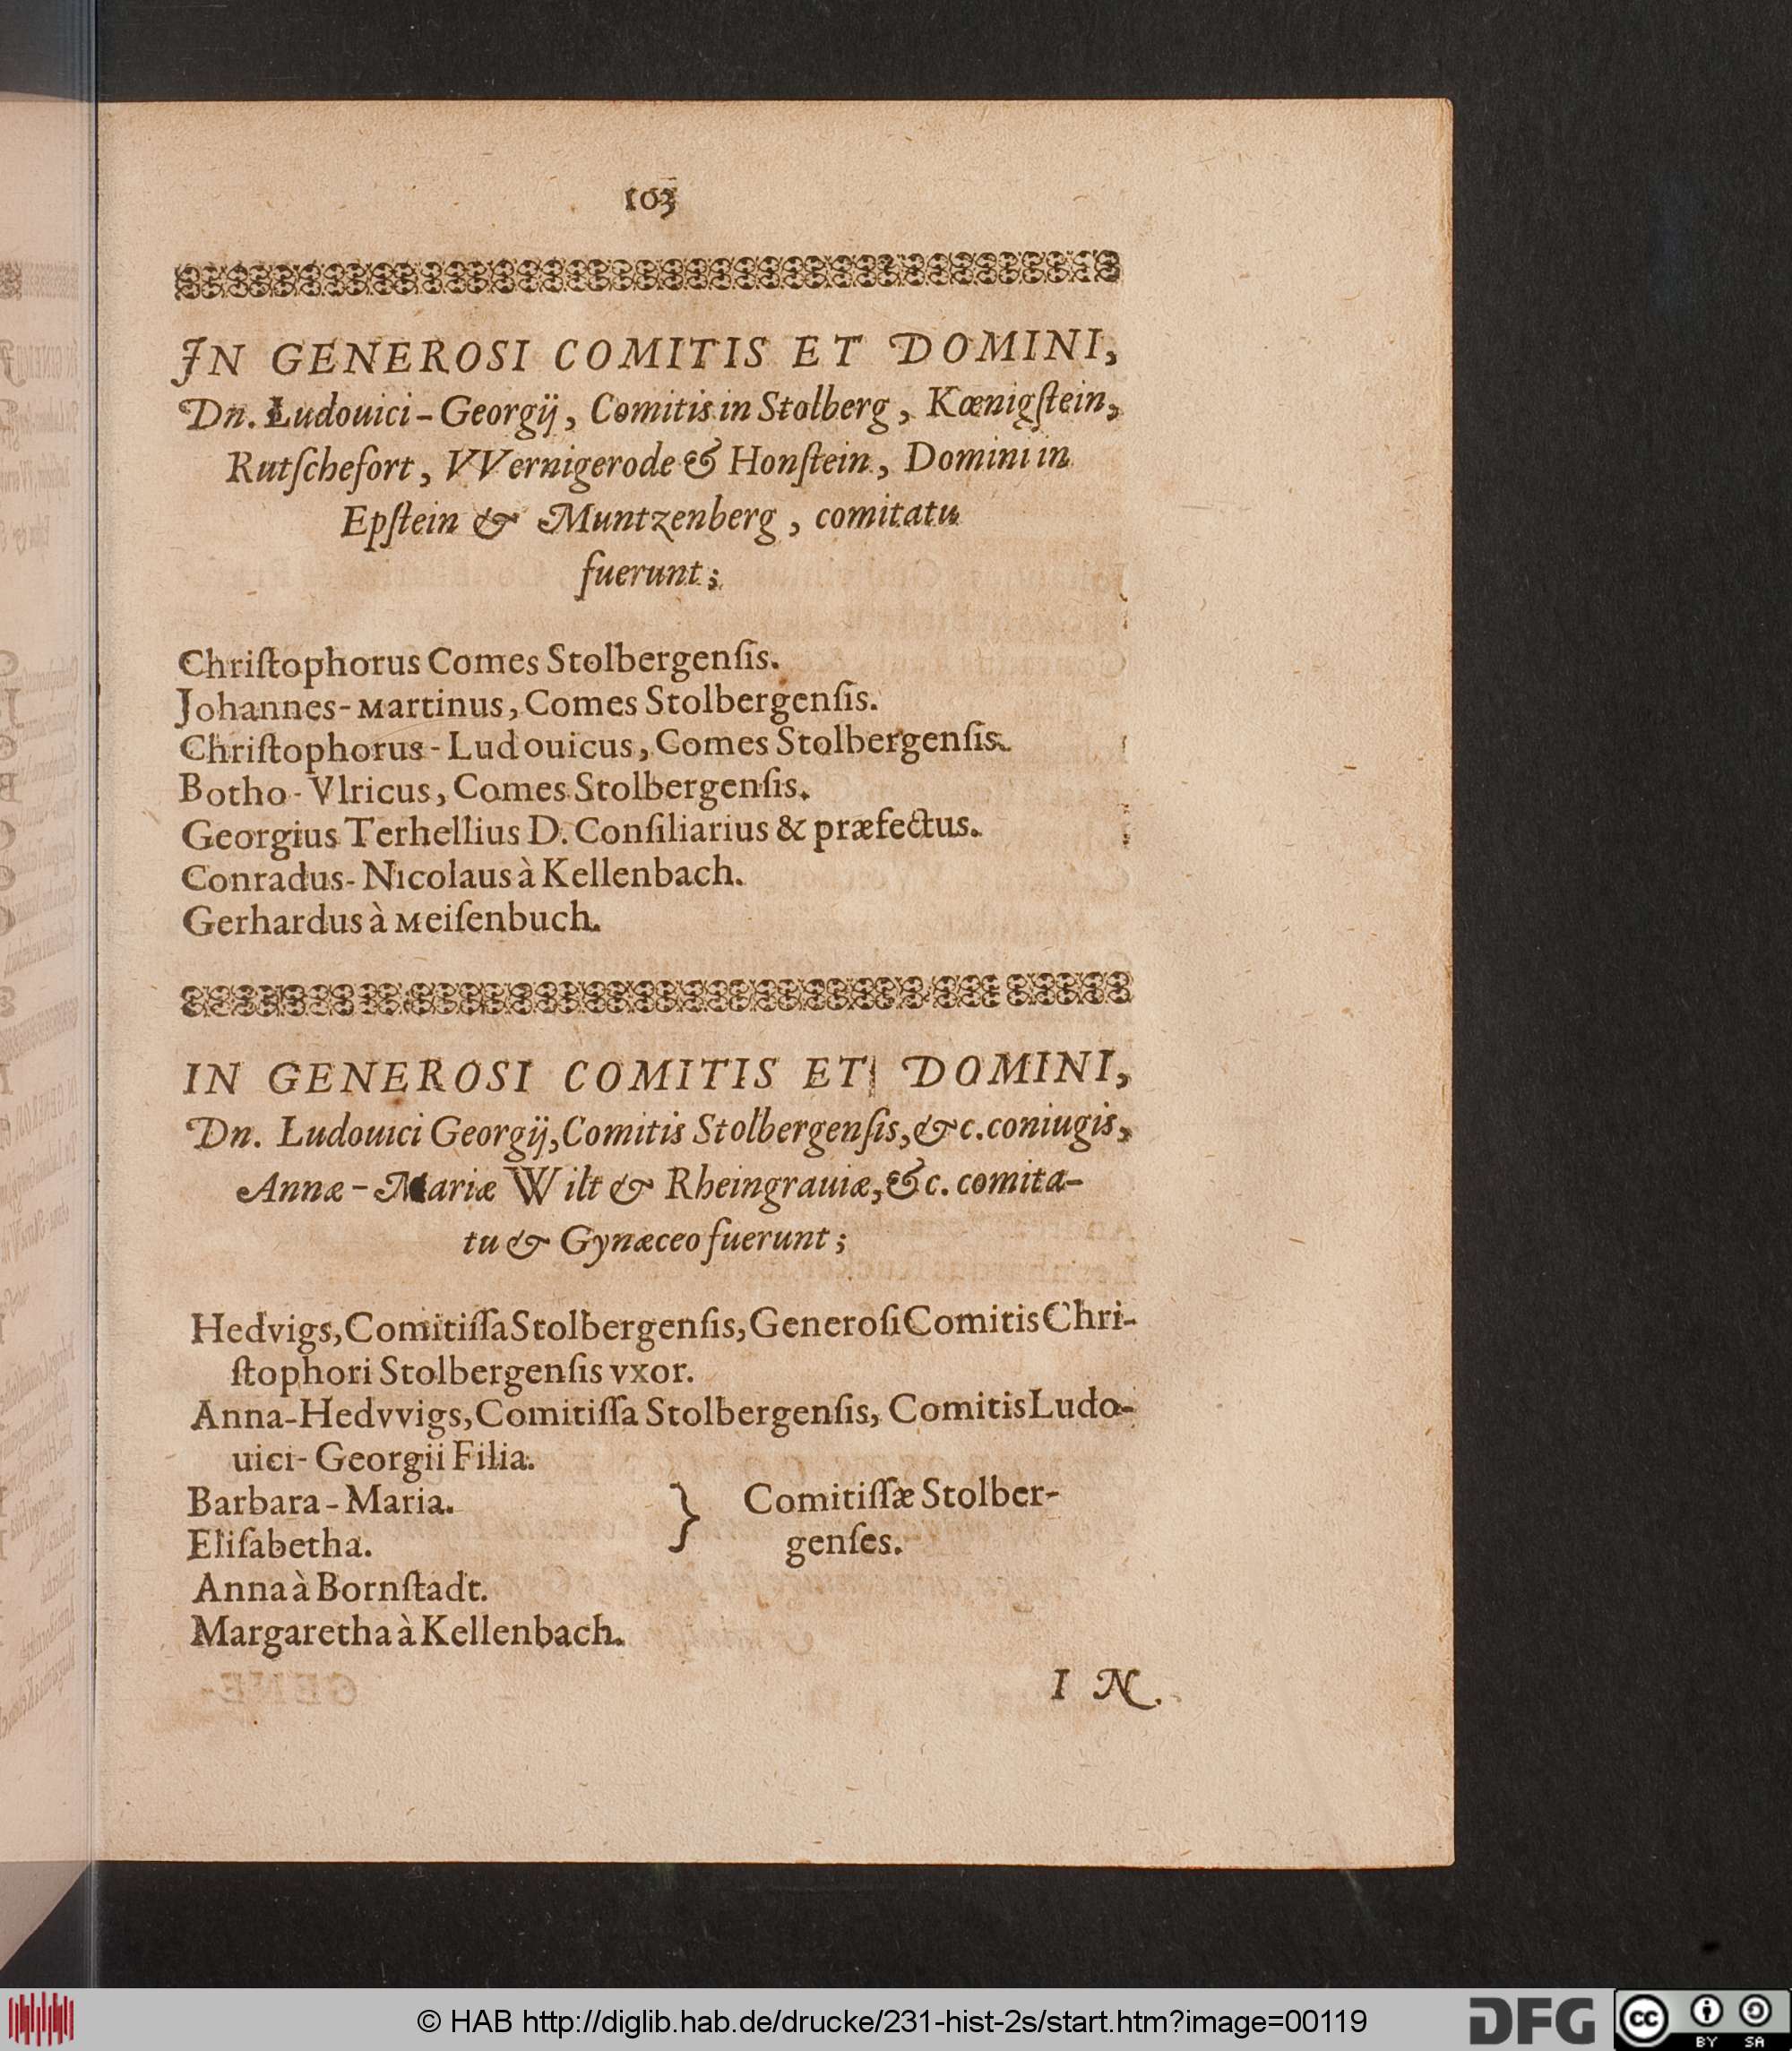 103
IN GENEROSI COMITIS ET DOMINI,
Dn. Ludouici-Georgij, Comitis in Stolberg, Kœnigſtein,
Rutſchefort, VVernigerode & Honſtein, Domini in
Epſtein & Muntzenberg, comitatu
fuerunt;
Chriſtophorus Comes Stolbergenſis.
Johannes-Martinus, Comes Stolbergenſis.
Chriſtophorus-Ludouicus, Comes Stolbergenſis.
Botho-Vlricus, Comes Stolbergenſis.
Georgius Terhellius D. Conſiliarius & præfectus.
Conradus-Nicolaus à Kellenbach.
Gerhardus à Meiſenbuch.
IN GENEROSI COMITIS ET DOMINI,
Dn. Ludouici Georgij, Comitis Stolbergenſis, &c. coniugis,
Annæ-Mariæ Wilt & Rheingrauiæ, &c. comita-
tu & Gynæceo fuerunt;
Hedvigs, Comitiſſa Stolbergenſis, Generoſi Comitis Chri-
ſtophori Stolbergenſis vxor.
Anna-Hedvvigs, Comitiſſa Stolbergenſis, Comitis Ludo-
uici-Georgii Filia.
Barbara-Maria. } Comitiſſæ Stolber-
Eliſabetha. genſes.
Anna à Bornſtadt.
Margaretha à Kellenbach.
IN
© HAB http://diglib.hab.de/drucke/231-hist-2s/start.htm?image=00119
DFG
cc
BY SA